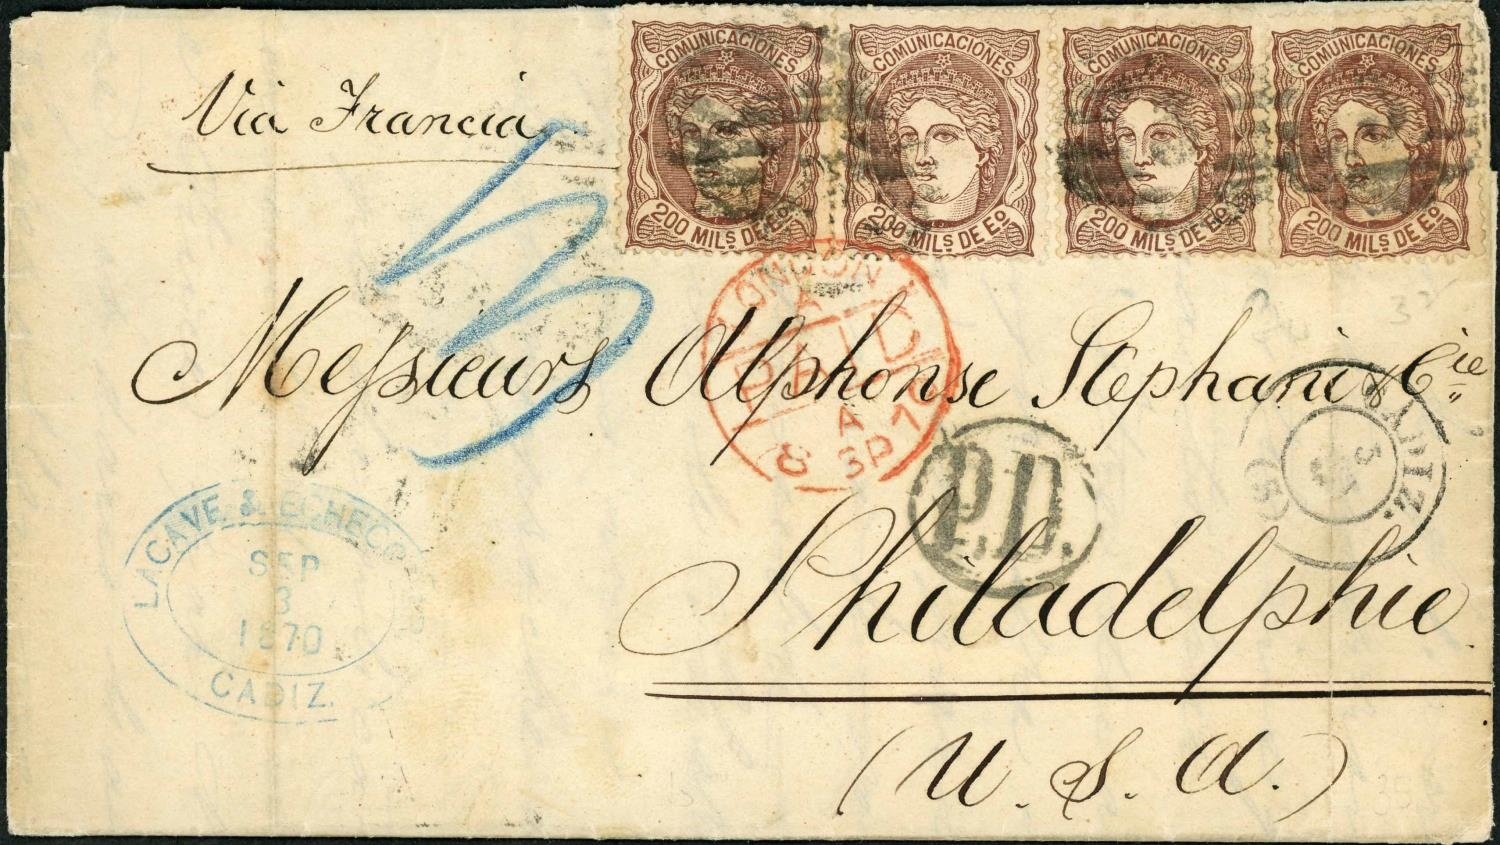 Via Francia
COMUNICACIONES
200 MILS DE Eº
COMUNICACIONES
200 MILS DE Eº
COMUNICACIONES
200 MILS DE Eº
COMUNICACIONES
200 MILS DE Eº
5
LONDON
PAID
A
8 SP 70
Messieurs Alphonse Stephani & Cie
P.D.
CADIZ.
Philadelphie
(U.S.A.)
LACAVE &
SEP
3
1870
CADIZ.